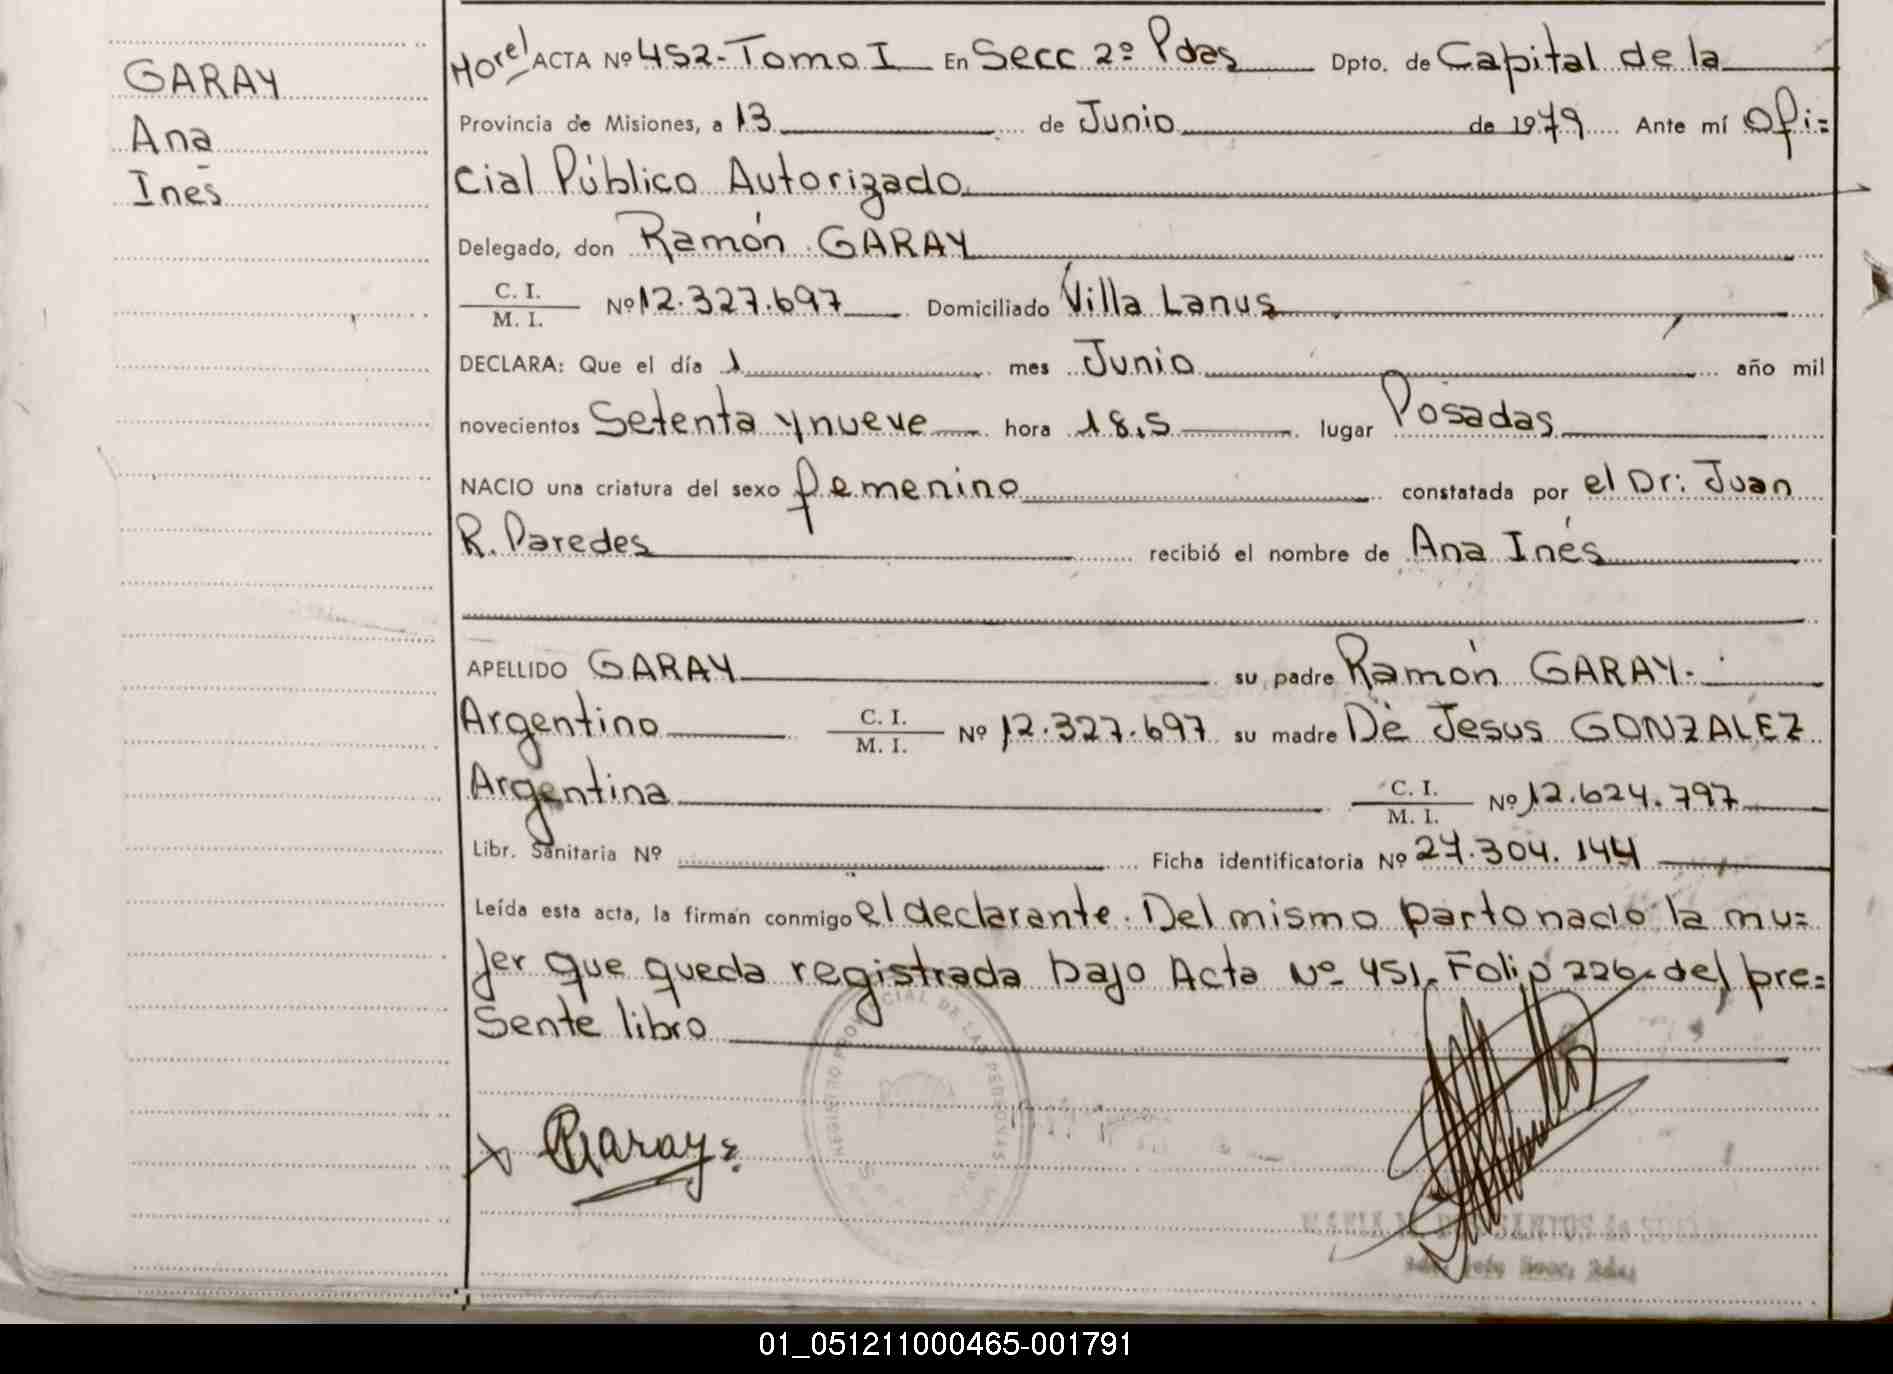 GARAY
Ana
Inés
ACTA Nº 452- Tomo I En Secc 2º Pdas Dpto. de Capital de la
Provincia de Misiones, a 13 de Junio de 1979 Ante mí Ofi=
cial Público Autorizado
Delegado, don Ramón GARAY
C. I.
M. I.
Nº 12.327.697 Domiciliado Villa Lanus
DECLARA: Que el día 1 mes Junio año mil
novecientos Setenta y nueve hora 18,5 lugar Posadas
NACIO una criatura del sexo femenino constatada por el Dr: Juan
R. Paredes recibió el nombre de Ana Inés
APELLIDO GARAY su padre Ramón GARAY-
Argentino C. I.
M. I. Nº 12.327.697 su madre De Jesus GONZALEZ
Argentina C. I.
M. I. Nº 12.624.797
Libr. Sanitaria Nº Ficha identificatoria Nº 27.304.144
Leída esta acta, la firman conmigo el declarante. Del mismo parto nacio la mu=
jer que queda registrada bajo Acta Nº 451- Folio 226- del pre=
sente libro
REGISTRO PROVINCIAL DE LAS PERSONAS
RGaray
01_051211000465-001791